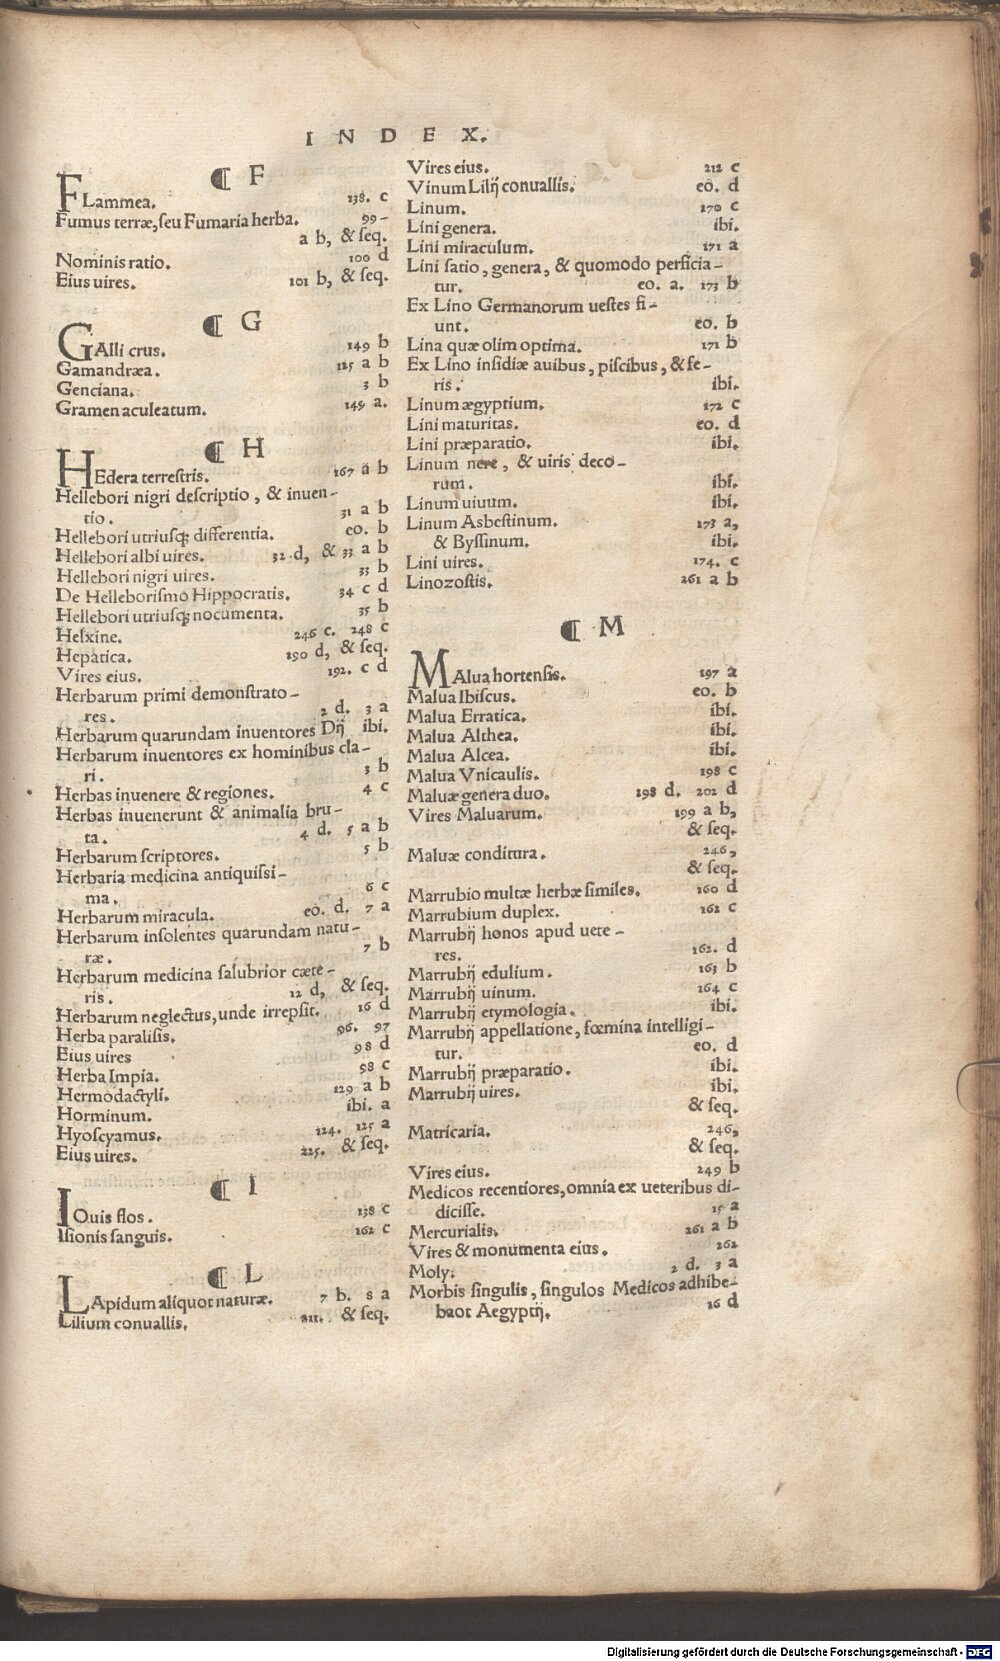 INDEX.
¶ F
FLammea. 138. c
Fumus terræ, ſeu Fumaria herba. 99-
a b, & ſeq.
Nominis ratio. 100 d
Eius uires. 101 b, & ſeq.
¶ G
GAlli crus. 149 b
Gamandræa. 125 a b
Genciana. 3 b
Gramen aculeatum. 149 a.
¶ H
HEdera terreſtris. 167 a b
Hellebori nigri deſcriptio, & inuen-
tio. 31 a b
Hellebori utriuſq; differentia. eo. b
Hellebori albi uires. 32 d, & 33 a b
Hellebori nigri uires. 33 b
De Helleboriſmo Hippocratis. 34 c d
Hellebori utriuſq; nocumenta. 35 b
Helxine. 246 c. 248 c
Hepatica. 190 d, & ſeq.
Vires eius. 192. c d
Herbarum primi demonſtrato-
res. 2 d. 3 a
Herbarum quarundam inuentores Dij ibi.
Herbarum inuentores ex hominibus cla-
ri. 3 b
Herbas inuenere & regiones. 4 c
Herbas inuenerunt & animalia bru-
ta. 4 d. 5 a b
Herbarum ſcriptores. 5 b
Herbaria medicina antiquiſsi-
ma. 6 c
Herbarum miracula. eo. d. 7 a
Herbarum inſolentes quarundam natu-
ræ. 7 b
Herbarum medicina ſalubrior cæte-
ris. 12 d, & ſeq.
Herbarum neglectus, unde irrepſit. 16 d
Herba paraliſis. 96. 97
Eius uires 98 d
Herba Impia. 58 c
Hermodactyli. 129 a b
Horminum. ibi. a
Hyoſcyamus. 224. 225 a
Eius uires. 225. & ſeq.
¶ I
IOuis flos. 138 c
Iſionis ſanguis. 162 c
¶ L
LApidum aliquot naturæ. 7 b. 8 a
Lilium conuallis. 211. & ſeq.
Vires eius. 212 c
Vinum Lilij conuallis. eo. d
Linum. 170 c
Lini genera. ibi.
Lini miraculum. 171 a
Lini ſatio, genera, & quomodo perficia-
tur. eo. a. 173 b
Ex Lino Germanorum ueſtes fi-
unt. eo. b
Lina quæ olim optima. 171 b
Ex Lino inſidiæ auibus, piſcibus, & fe-
ris. ibi.
Linum ægyptium. 172 c
Lini maturitas. eo. d
Lini præparatio. ibi.
Linum nere, & uiris deco-
rum. ibi.
Linum uiuum. ibi.
Linum Asbeſtinum. 173 a,
& Byſſinum. ibi.
Lini uires. 174. c
Linozoſtis. 261 a b
¶ M
MAlua hortenſis. 197 a
Malua Ibiſcus. eo. b
Malua Erratica. ibi.
Malua Althea. ibi.
Malua Alcea. ibi.
Malua Vnicaulis. 198 c
Maluæ genera duo. 198 d. 202 d
Vires Maluarum. 199 a b,
& ſeq.
Maluæ conditura. 246,
& ſeq.
Marrubio multæ herbæ ſimiles. 160 d
Marrubium duplex. 162 c
Marrubij honos apud uete-
res. 162. d
Marrubij edulium. 163 b
Marrubij uinum. 164 c
Marrubij etymologia. ibi.
Marrubij appellatione, fœmina intelligi-
tur. eo. d
Marrubij præparatio. ibi.
Marrubij uires. ibi.
& ſeq.
Matricaria. 246,
& ſeq.
Vires eius. 249 b
Medicos recentiores, omnia ex ueteribus di-
diciſſe. 15 a
Mercurialis. 261 a b
Vires & monumenta eius. 262
Moly. 2 d. 3 a
Morbis ſingulis, ſingulos Medicos adhibe-
baot Aegyptij. 16 d
Digitalisierung gefördert durch die Deutsche Forschungsgemeinschaft - DFG